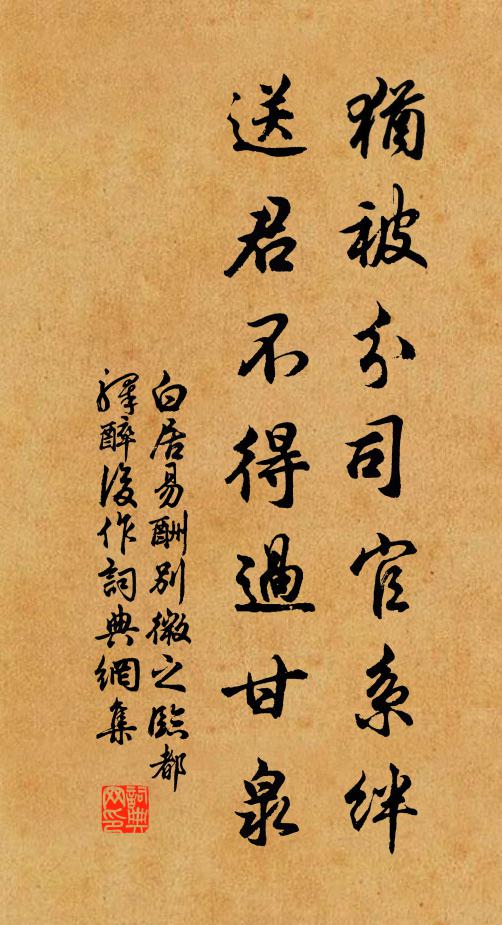 猶被分司官系絆
送君不得過甘泉
白居易酬別微之臨都
驛醉後作詞典網集
詞典網印